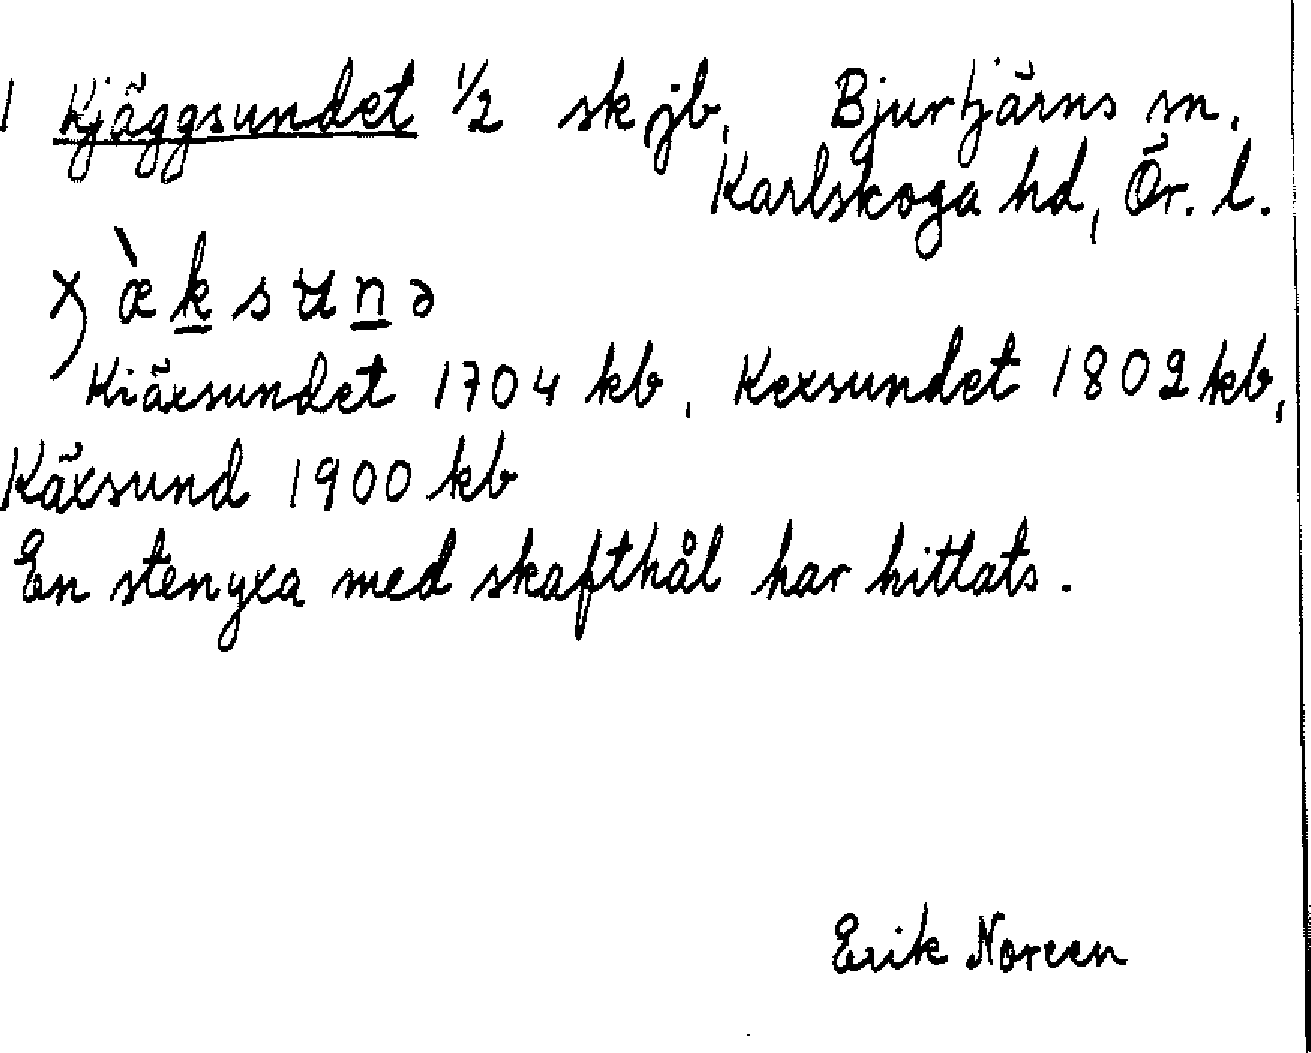 1 Kjäggsundet 1/2 skjb, Bjurtjärns sn.
Karlskoga hd, Ör. l.
Kiäxsundet 1704 kb, Kexsundet 1802 kb,
Käxsund 1900 kb
En stenyxa med skafthål har hittats.
Erik Noreen